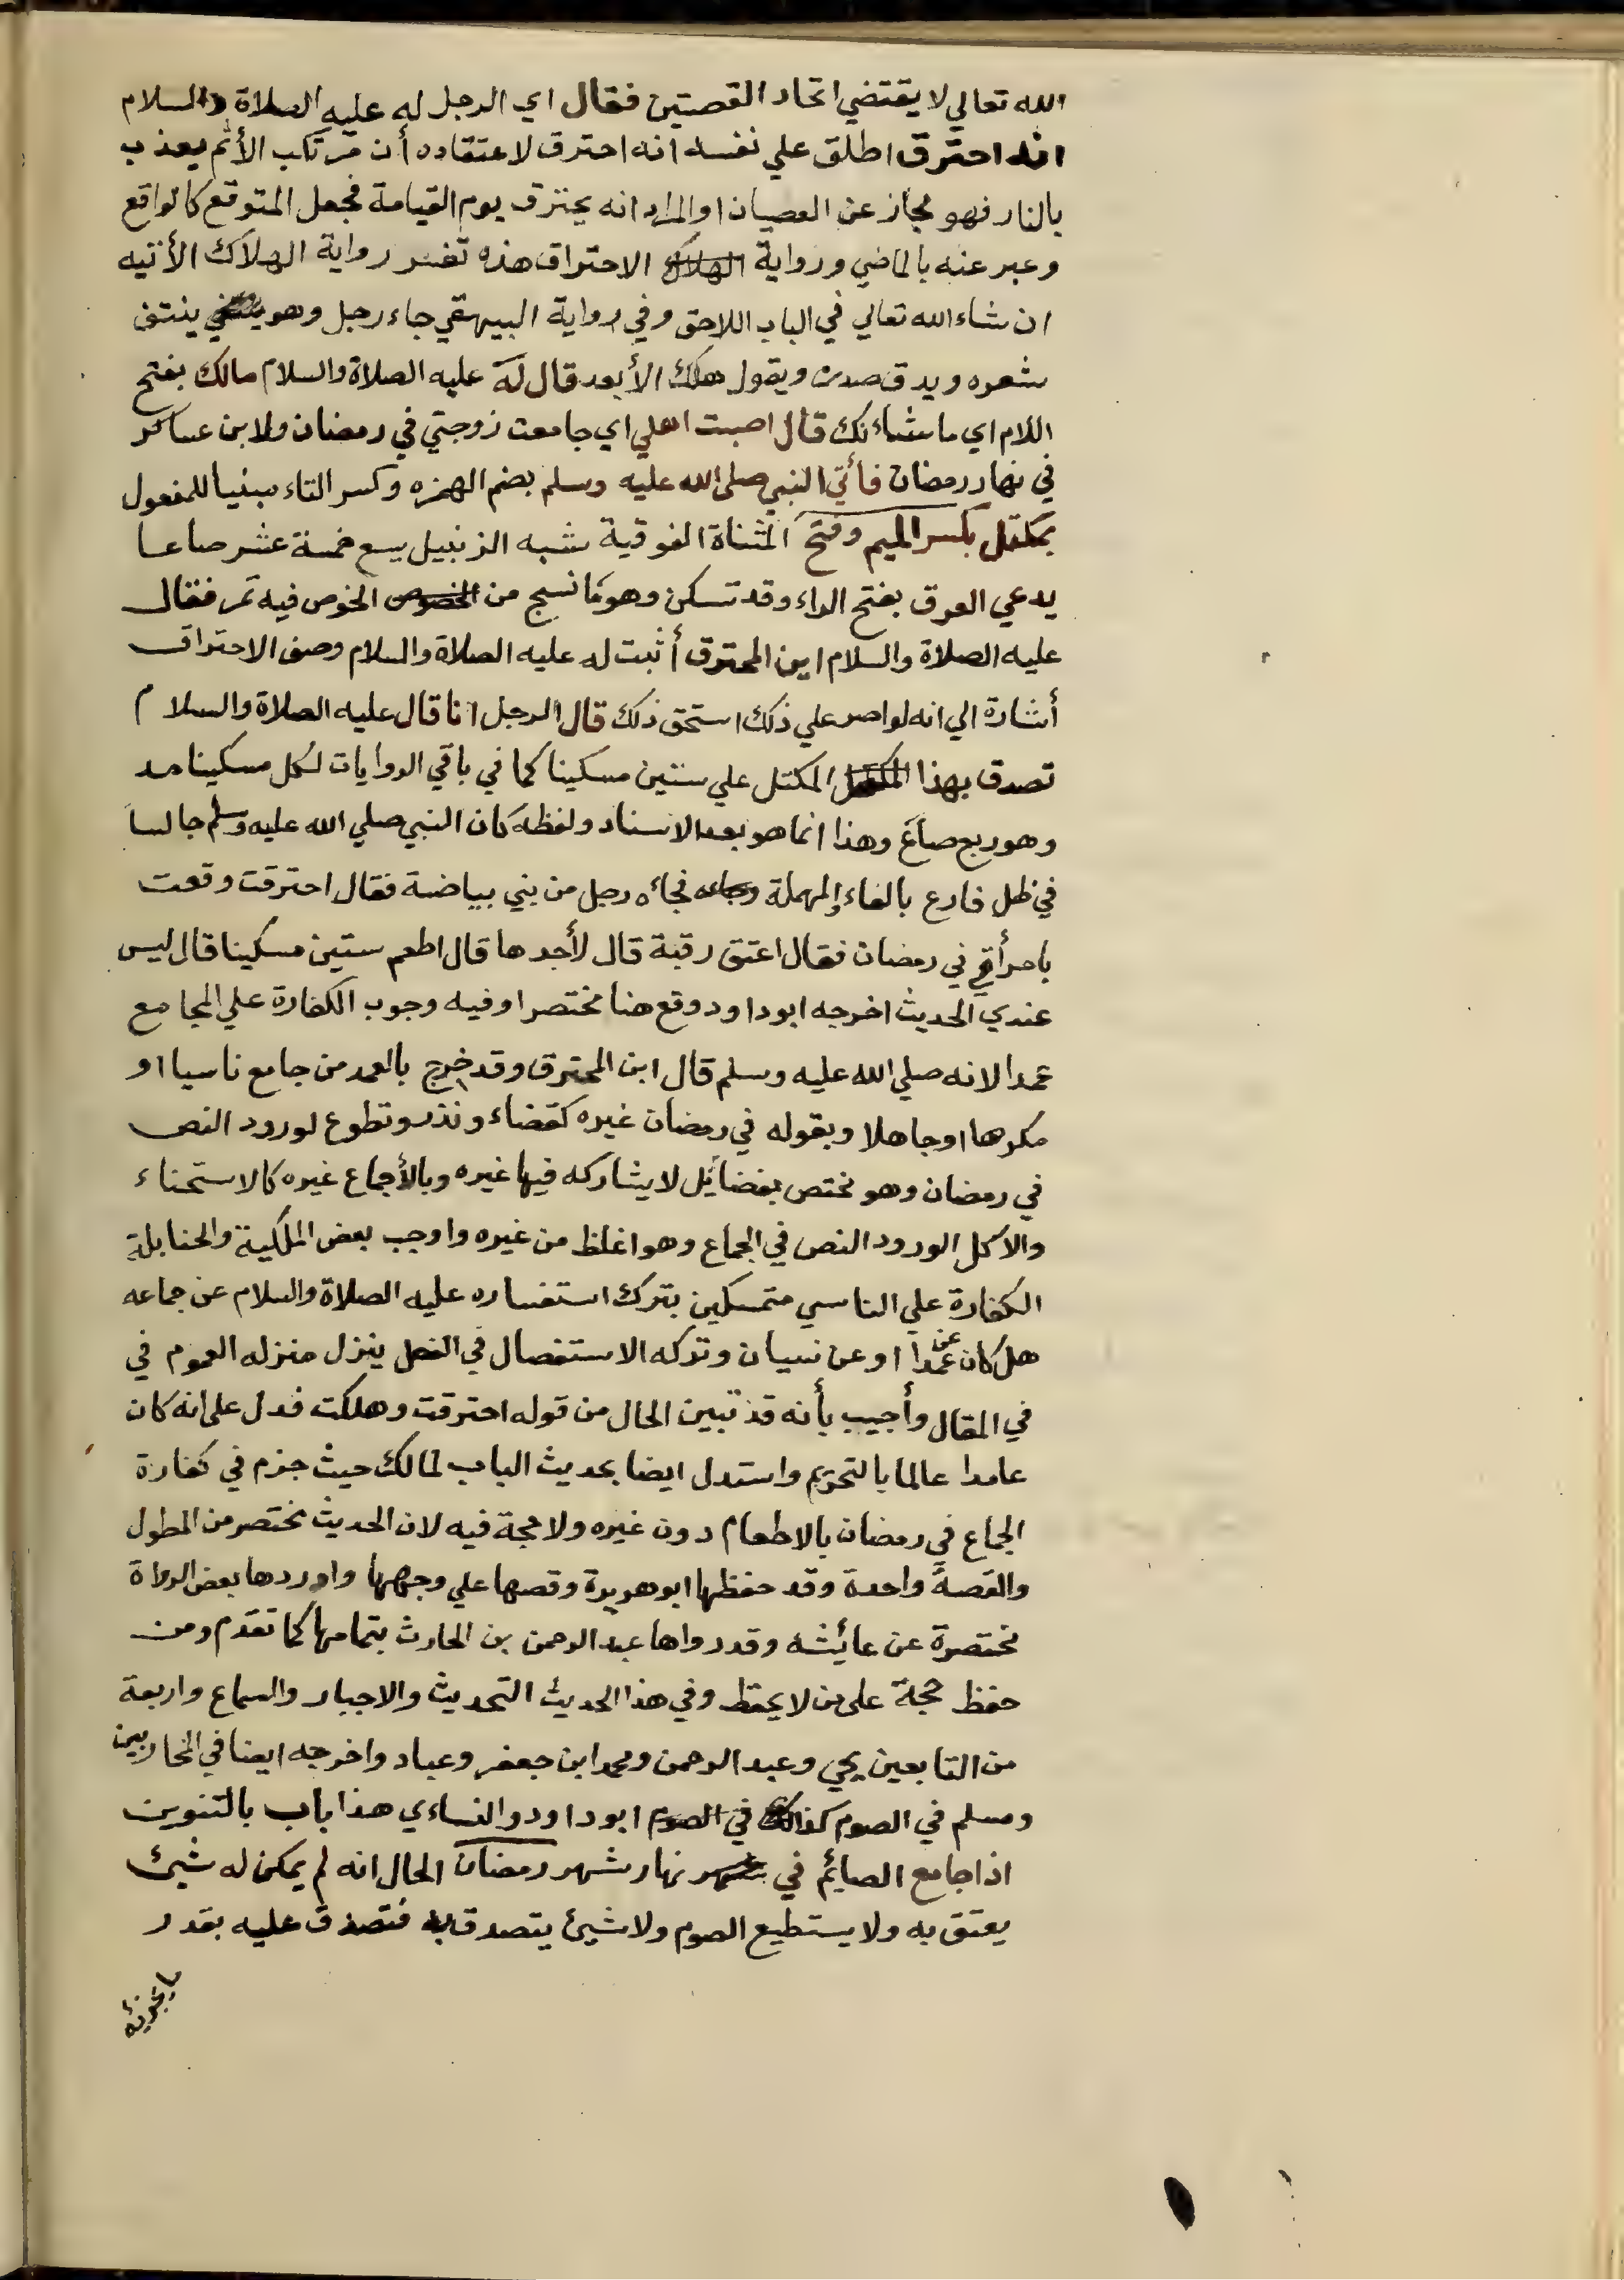 الله تعالي لا يقتضي اتحاد القصتين فقال اي الرجل له عليه الصلاة والسلام
انه احترق اطلق علي نفسه انه احترق لاعتقاده أن مرتكب الأثم يعذب
بالنار فهو مجاز عن العصيان او المراد انه يحترق يوم القيامة فجعل المتوقع كالواقع
وعبر عنه بالماضي ورواية الهلاك الاحتراق هذه تفسر رواية الهلاك الأتيه
ان شاء الله تعالي في الباب اللاحق وفي رواية البيهقي جاء رجل وهو ينتف
شعره ويدق صدره ويقول هلك الأبعد قال له عليه الصلاة والسلام مالك بفتح
اللام اي ما شاءنك قال اصبت اهلي اي جامعت زوجتي في رمضان ولابن عساكر
في نهار رمضان فأتي النبي صلى الله عليه وسلم بضم الهمزه وكسر التاء مبنيا للمفعول
بمكتل بكسر الميم وفتح المثناة الفوقية شبه الزنبيل يسع خمسة عشر صاعا
يدعي العرق بفتح الراء وقد تسكن وهو ما نسج من الخصوص الخوص فيه تمر فقال
عليه الصلاة والسلام اين المحترق أثبت له عليه الصلاة والسلام وصف الاحتراق
أشارة الي انه لو اصر علي ذلك استحق ذلك قال الرجل انا قال عليه الصلاة والسلام
تصدق بهذا المكتل المكتل علي ستين مسكينا كما في باقي الروايات لكل مسكينا مد
وهو ربع صاع وهذا انما هو بعد الاسناد ولفظه كان النبي صلي الله عليه وسلم جالسا
في ظل فارع بالفاء والمهملة وجاءه فجائه رجل من بني بياضة فقال احترقت وقعت
بامرأتي في رمضان فقال اعتق رقبة قال لأجدها قال اطعم ستين مسكينا قال ليس
عندي الحديث اخرجه ابوداود ووقع هنا مختصرا وفيه وجوب الكفارة علي المجامع
عمدا لانه صلي الله عليه وسلم قال اين المحترق وقد خرج بالعمد من جامع ناسيا او
مكرها او جاهلا وبقوله في رمضان غيره كقضاء ونذر وتطوع لورود النص
في رمضان وهو مختص بفضائل لا يشاركه فيها غيره وبالأجماع غيره كالاستمناء
والاكل الورود النص في الجماع وهو اغلظ من غيره واوجب بعض الملكية والحنابلة
الكفارة علي الناسي متمسكين بترك استفساره عليه الصلاة والسلام عن جماعه
هل كان عن عمدا او عن نسيان وتركه الاستفصال في الفعل ينزل منزله العموم في
في المقال وأجيب بأنه قد تبين الحال من قوله احترقت وهلكت فدل على انه كان
عامدا عالما بالتحريم واستدل ايضا بحديث الباب لمالك حيث جزم في كفارة
الجماع في رمضان بالاطعام دون غيره ولا حجة فيه لان الحديث مختصر من المطول
والقصة واحدة وقد حفظها ابو هريرة وقصها علي وجهها واوردها بعض الرواة
مختصرة عن عائشه وقد رواها عبد الرحمن بن الحارث بتمامها كما تقدم ومن
حفظ حجة على من لا يحفظ وفي هذا الحديث التحديث والاخبار والسماع واربعة
من التابعين يحي وعبد الرحمن ومحمد ابن جعفر وعباد واخرجه ايضا في المحاربين
ومسلم في الصوم كذالك في الصوم ابوداود والنساءي هذا باب بالتنوين
اذا جامع الصائم في شهر نهار شهر رمضان الحال انه لم يمكن له شيئ
يعتق به ولا يستطيع الصوم ولا شيئ يتصدق به فتصدق عليه بقدر
ما يجزئه